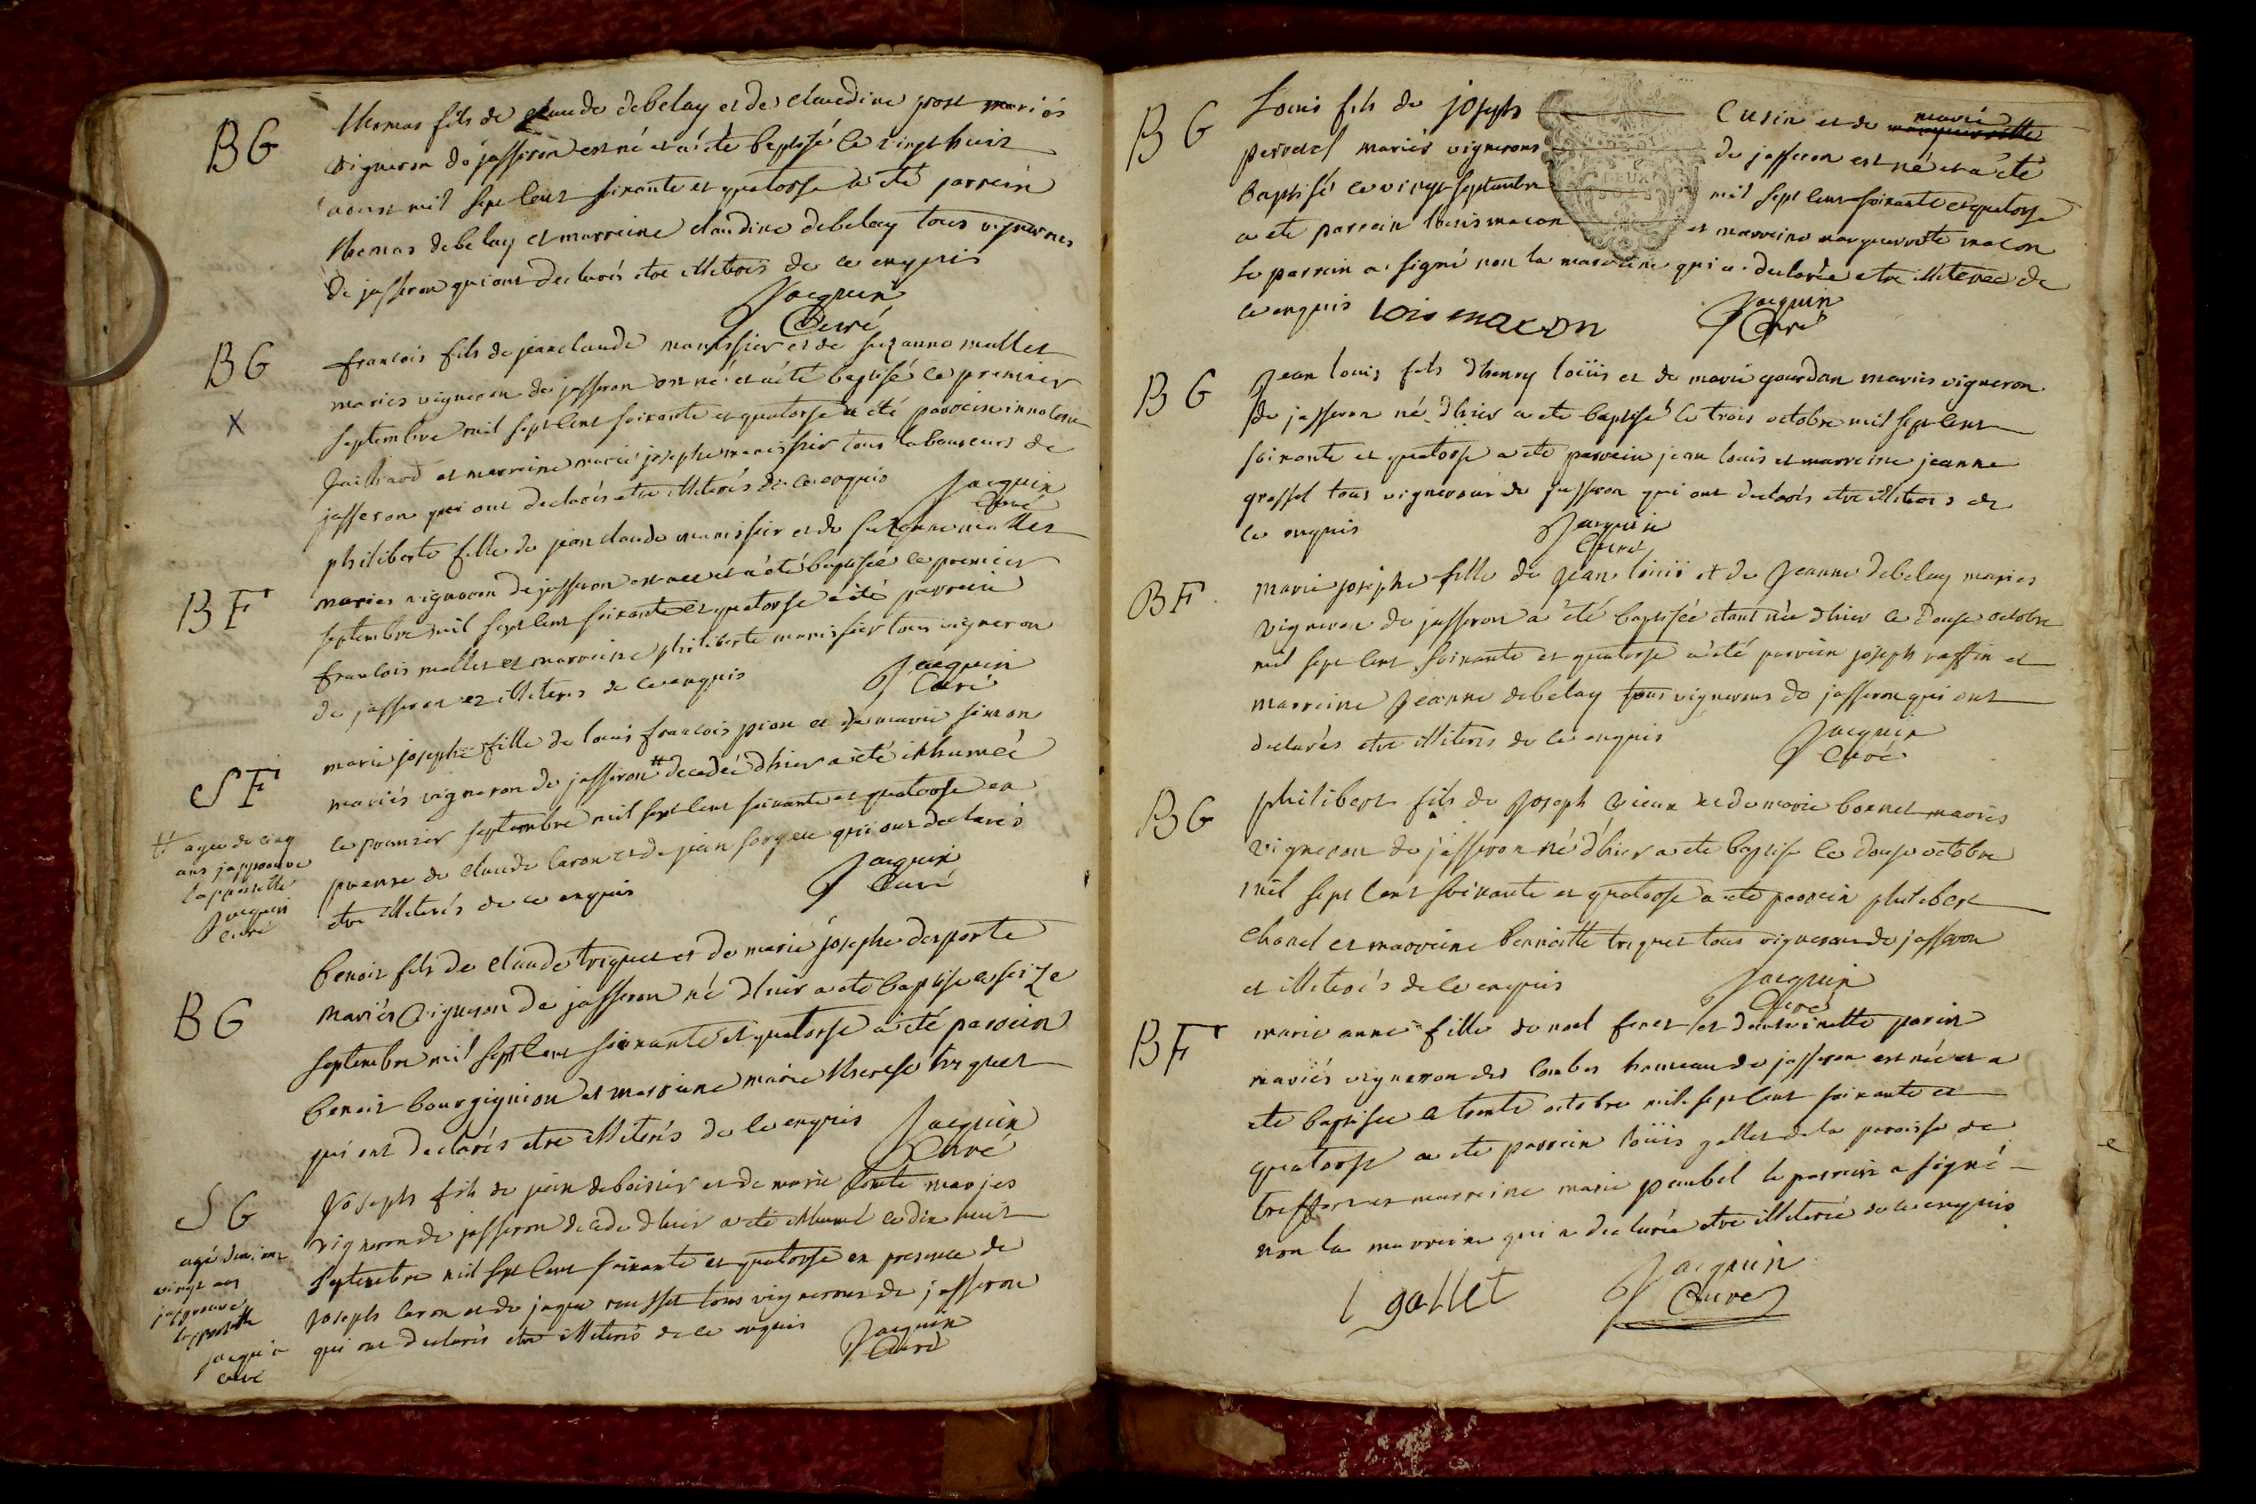 BG
Thomas fils de claude debelay et de claudine pose mariés
vigneron de jasseron est né et a été baptisé le vingt huit
aoust mil sept cent soixante et quatorse a été parrein
thomas debelay et marreine claudine debelay tous vignerons
de jasseron qui ont declarés etre illiterés de ce enquis
Jacquin
Curé
BG
X
francois fils de jean claude manissier et de suzanne mallet
mariés vigneron de jasseron est né et a été baptisé le premier
septembre mil sept cent soixante et quatorse a été parrein
et marreine marie josephe manissier tous laboureurs de
jasseron qui ont declarés etre illiterés de ce enquis
Jacquin
Curé
BF
philiberte fille de jean claude manissier et de suzanne mallet
mariés vigneron de jasseron est nee et a été baptisée le premier
septembre mil sept cent soixante et quatorse a été parrein
francois mallet et marreine philiberte manissier tous vigneron
de jasseron et illiterés de ce enquis
Jacquin
Curé
SF
marie josephe fille de louis francois pion et de marie simon
mariés vigneron de jasseron # decedée d'hier a été inhumée
le premier septembre mil sept cent soixante et quatorse en
presence de claude caron et de jean qui ont declarés
etre illiterés de ce enquis
Jacquin
Curé
# agee de cinq
ans japprouve
lapostille
Jacquin
curé
BG
benoit fils de claude triquet et de marie josephe desporte
mariés vigneron de jasseron né d'hier a ete baptisé le seize
septembre mil sept cent soixante et quatorse a été parrein
benoit bourgignion et marreine marie therese triquet
qui ont declarés etre illiterés de ce enquis
Jacquin
Curé
SG
Joseph fils de jean deboissier et de marie conte mariés
vigneron de jasseron decedé d'hier a été inhumé le dix huit
septembre mil sept cent soixante et quatorse en presence de
joseph caron et de jaque rousset tous vignerons de jasseron
qui ont declarés etre illiterés de ce enquis
Jacquin
Curé
agé
vingt ans
japprouve
lapostille
jacquin
curé
BG
Louis fils de joseph Cusin et de marie
perretel mariés vignerons de jasseron est né et a été
baptisé le vingt septembre mil sept cent soixante et quatorse
a ete parrein louis macon et marreine marguerite macon
le parrein a signé non la marreine qui a declarée etre illiterée de
ce enquis lois macon
Jacquin
Curé
DEUX
SOLS
BG
Jean louis fils d'henry loüis et de marie gourdan mariés vigneron
de jasseron né d'hier a ete baptisé le trois octobre mil sept cent
soixante et quatorse a ete parrein jean louis et marreine jeanne
grosset tous vignerons de jasseron qui ont declarés etre illiterés de
ce enquis
Jacquin
Curé
BF
marie josephe fille de jean loüis et de Jeanne debelay mariés
vigneron de jasseron a été baptisée etant née d'hier le douse octobre
mil sept cent soixante et quatorse a été parrein joseph raffin et
marreine Jeanne debelay tous vignerons de jasseron qui ont
declarés etre illiterés de ce enquis
Jacquin
Curé
BG
philibert fils de Joseph vieux et de marie bonnet mariés
vigneron de jasseron né d'hier a ete baptisé le douse octobre
mil sept cent soixante et quatorse a ete parrein philibert
chanel et marreine bennoitte triquet tous vignerons de jasseron
et illiterés de ce enquis
Jacquin
Curé
BF
marie anne fille de noel feret et de toinette parin
mariés vigneron des combes hameau de jasseron est née et a
ete baptisee le trente octobre mil sept cent soixante et
quatorse a ete parrein loüis gallet de la paroisse de
treffort et marreine marie paubel le parrein a signé
non la marreine qui a declarée etre illiterée de ce enquis
l gallet
Jacquin
Curé